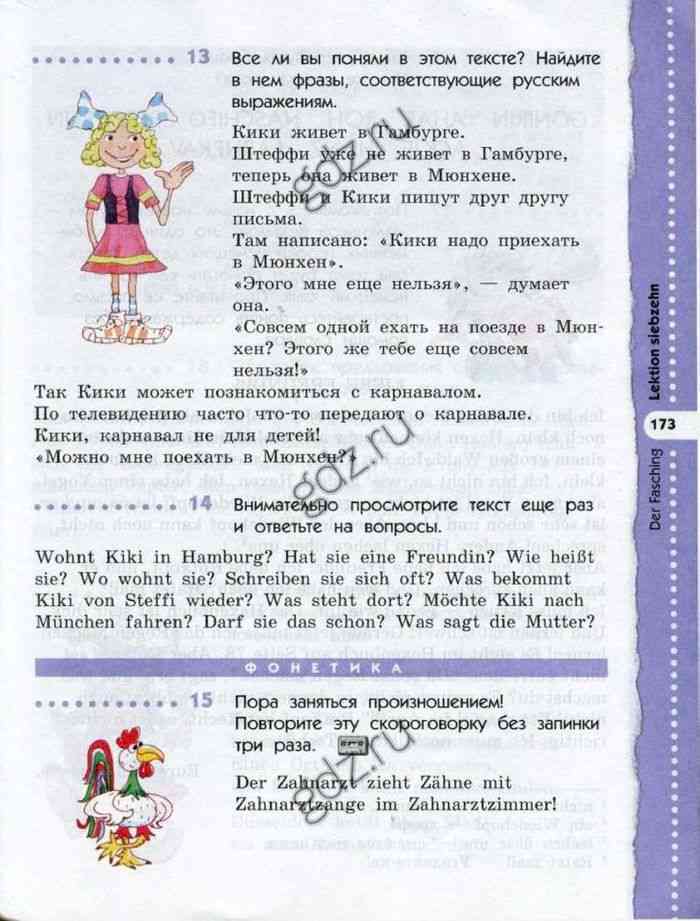 13 Все ли вы поняли в этом тексте? Найдите
в нем фразы, соответствующие русским
выражениям.
Кики живет в Гамбурге.
Штеффи уже не живет в Гамбурге,
теперь она живет в Мюнхене.
Штеффи и Кики пишут друг другу
письма.
Там написано: «Кики надо приехать
в Мюнхен».
«Этого мне еще нельзя», — думает
она.
«Совсем одной ехать на поезде в Мюн-
хен? Этого же тебе еще совсем
нельзя!»
Так Кики может познакомиться с карнавалом.
По телевидению часто что-то передают о карнавале.
Кики, карнавал не для детей!
«Можно мне поехать в Мюнхен?»
14 Внимательно просмотрите текст еще раз
и ответьте на вопросы.
Wohnt Kiki in Hamburg? Hat sie eine Freundin? Wie heißt
sie? Wo wohnt sie? Schreiben sie sich oft? Was bekommt
Kiki von Steffi wieder? Was steht dort? Möchte Kiki nach
München fahren? Darf sie das schon? Was sagt die Mutter?
ФОНЕТИКА
15 Пора заняться произношением!
Повторите эту скороговорку без запинки
три раза.
Der Zahnarzt zieht Zähne mit
Zahnarztzange im Zahnarztzimmer!
Lektion siebzehn
173
Der Fasching
gdz.ru
gdz.ru
gdz.ru